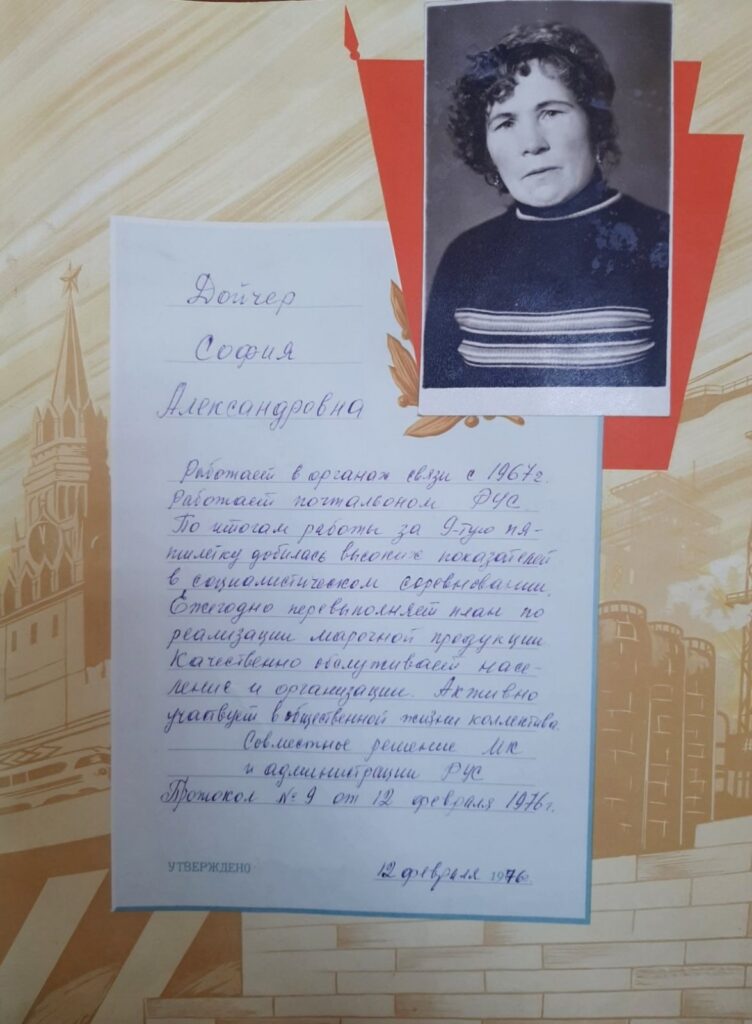 Дойчер
София
Александровна
Работает в органах связи с 1967г.
Работает почтальоном РУС.
По итогам работы за 9-тую пя-
тилетку добилась высоких показателей
в социалистическом соревновании.
Ежегодно перевыполняет план по
реализации марочной продукции.
Качественно обслуживает насе-
ление и организации. Активно
участвует в общественной жизни коллектива
Совместное решение МК
и администрации РУС
Протокол № 9 от 12 февраля 1976г.
УТВЕРЖДЕНО 12 февраля 1976г.